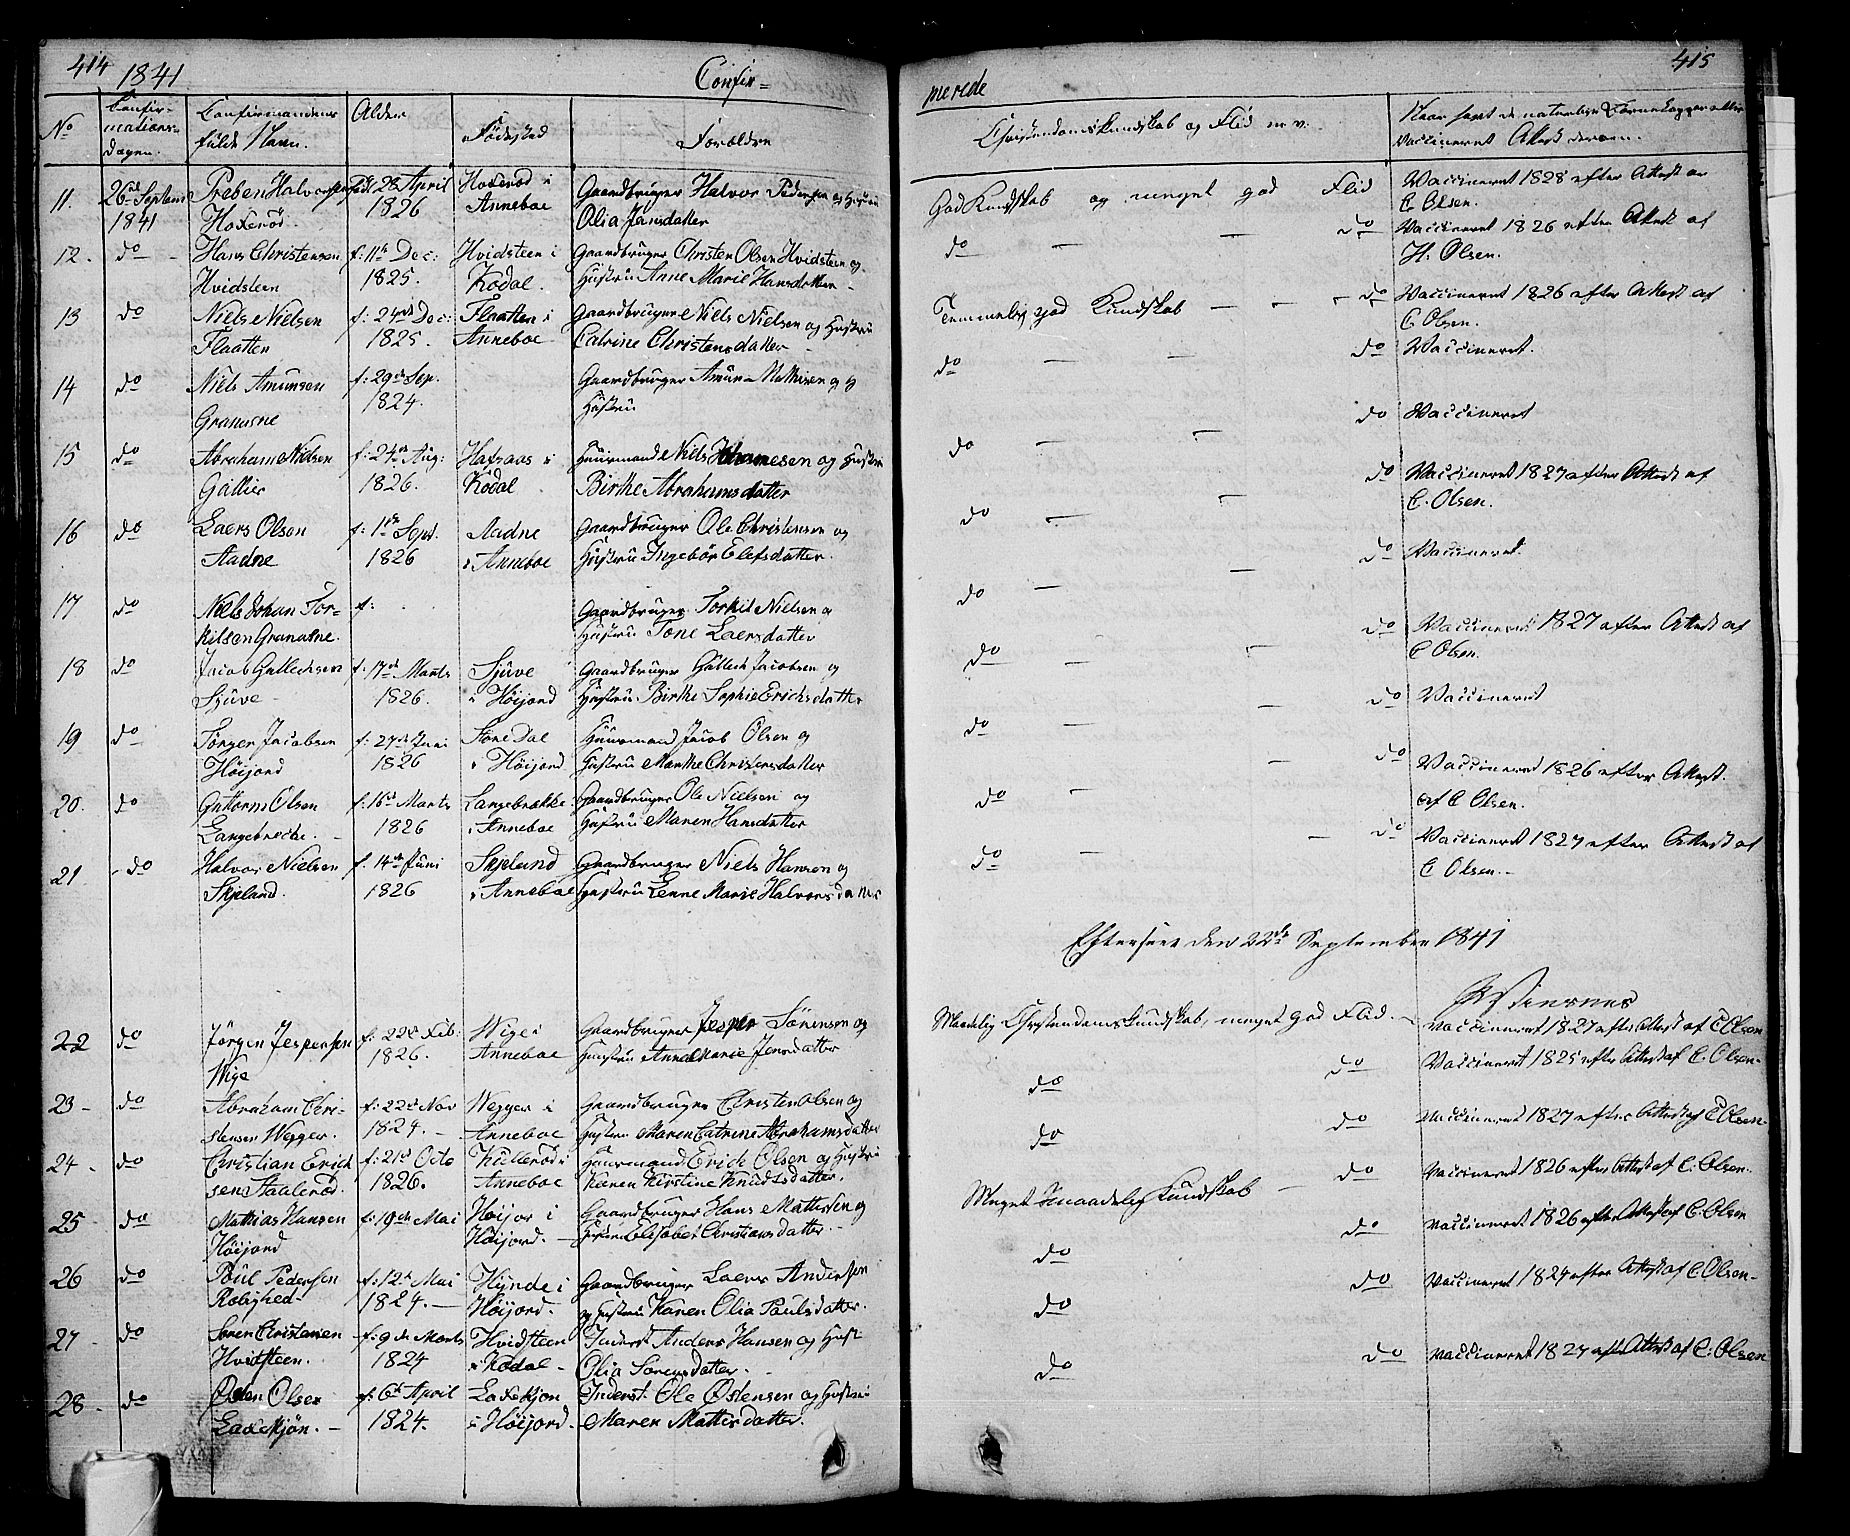 414
1841
Confir=
No
Confir-
mations-
dagen.
Confirmandens
fulde Navn.
Alder
Fødested
Forældre
11. 26de Septem 1841 Preben Halvorsen Hoxerød. Fød 28 April 1826 Hoxerød i Anneboe Gaardbruger Halvor Pedersen og Hustru Olia Jansdatter
12. do Hans Christensen Hvidsteen f: 11te Dec: 1825. Hvidsteen i Kodal. Gaardbruger Christen Olsen Hvidsteen og Hustru Anne Marie Hansdatter
13 do Niels Nielsen Flaatten f: 24de Dec: 1825. Flaatten i Anneboe Gaardbruger Niels Nielsen og Hustru Catrine Christensdatter
14 do Niels Amunsen Granerne f: 29de Sep. 1824. Gaardbruger Amun Mathisen og Hustru
15 do Abraham Nielsen Gallier f: 24de Aug: 1826. Hafsaas i Kodal Huusmand Niels Johannesen og Hustru Birthe Abrahamsdatter
16 do Laers Olsen Aadne f: 1ste Sept. 1826 Aadne i Anneboe Gaardbruger Ole Christensen og Hustru Ingebør Elefsdatter.
17 do Niels Johan Tor-kilsen Granerne. f: Gaardbruger Torkil Nielsen og Hustru Tone Laersdatter
18 do Jacob Gullechsen Sjuve f: 17de Marts 1826. Sjuve i Høijord Gaardbruger Gullech Jacobsen og Hustru Birthe Sophie Erichsdatter
19 do Jørgen Jacobsen Høijord f: 27de Juni 1826 Store Dal i Høijord Huusmand Jacob Olsen og Hustru Marthe Christensdatter
20. do Guttorm Olsen Langebreche. f: 16d Marts 1826 Langebrække i Anneboe Gaardbruger Ole Nielsen og Hustru Maren Hansdatter
21 do Halvor Nielsen Skjeland. f. 14de Juni 1826 Skjelund i Anneboe Gaardbruger Niels Hansen og Hustru Lenne Marie Halvorsdatter
22 do Jørgen Jespersen Wige f: 22de Feb: 1826. Wige i Anneboe Gaardbruger Jesper Sørensen og Huustru Anne Marie Jensdatter
23 do Abraham Chri-stensen Wegger. f: 22de Nov 1824. Wegger i Anneboe Gaardbruger Christen Olsen og Hustru Maren Catrine Abrahamsdatter
24 do Christian Erich sen Staalerød. f: 21de Octo 1826. Kullerød i Anneboe Huusmand Erich Olsen og Hustru Karen Kirstine Knudsdatter.
25 do Mathias Hansen Høijord f: 19de Mai Høijor i Høijord. Gaardbruger Hans Mathisen og Hustru Elisabet Christiansdatter
26 do Poul Pedersen Rolighed f: 12de Mai 1824. Hynde i Høijord. Gaardbruger Laers Andersen og Hustru Karen Olia Paulsdatter.
27 do Søren Christensen Hvidsteen. f: 9de Marts 1824 Hvidsteen i Kodal Inderst Anders Hansen og Hust Olia Sorensdatter.
28 do Østen Olsen Laxekjøn. f: 6te April 1824. Laxekjon i Høijord Inderst. Ole Østensen og Hustru Maren Mattisdatter.
415
merede
Christendomskundskab og Flid m.v.
Vaccineret Attest derom.
God Kundskab og meget god Flid
Vaccineret 1828 efter Attest av C Olsen.
do do Vaccineret 1826 efter Attest af H. Olsen.
Temmelig god Kundskab do Vaccineret 1826 efter Attest af C. Olsen.
do do Vaccineret.
do Vaccineret
do do Vaccineret 1827 efter Attest af C. Olsen.
do do Vaccineret
do do Vaccineret 1827 efter Attest af C Olsen.
do do Vaccineret
do do Vaccineret 1826 efter Attest. af C Olsen.
do do Vaccineret 1827 efter Attest af C Olsen.
do
Efterseet den 22de September 1841
Maadelig Christendomskundskab, meget god Flid.
Vaccineret 1827 efter Attest af C Olsen
do do Vaccineret 1825 efter Attest af C. Olsen
do do Vaccineret 1827 efter Attest af C Olsen
Meget Smaadelig Kundskab do Vaccineret 1826 efter Attest af C. Olsen.
do do Vaccineret 1826 efter Attest af C. Olsen
do do Vaccineret 1824 efter Attest af C. Olsen
do do Vaccineret 1827 efter Attest af C. Olsen